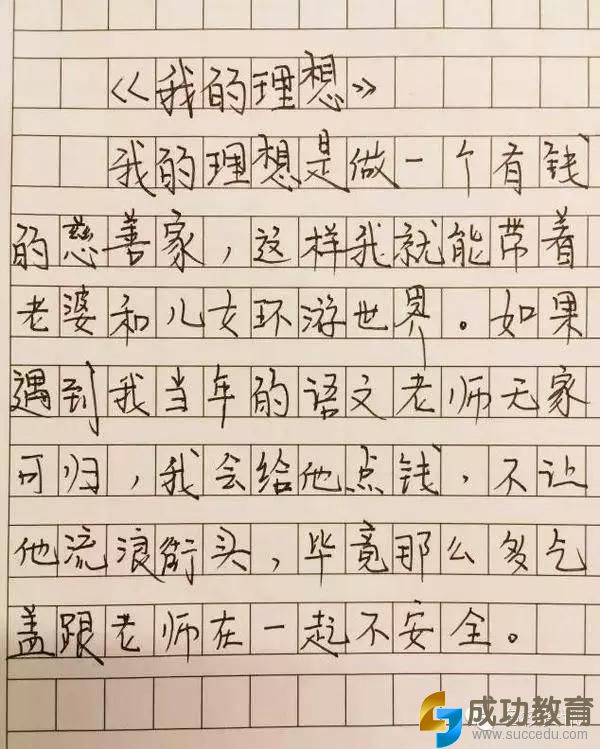 《我的理想》
我的理想是做一个有钱
的慈善家，这样我就能带着
老婆和儿女环游世界。如果
遇到我当年的语文老师无家
可归，我会给他点钱，不让
他流浪街头，毕竟那么多乞
盖跟老师在一起不安全。
成功教育
www.succedu.com